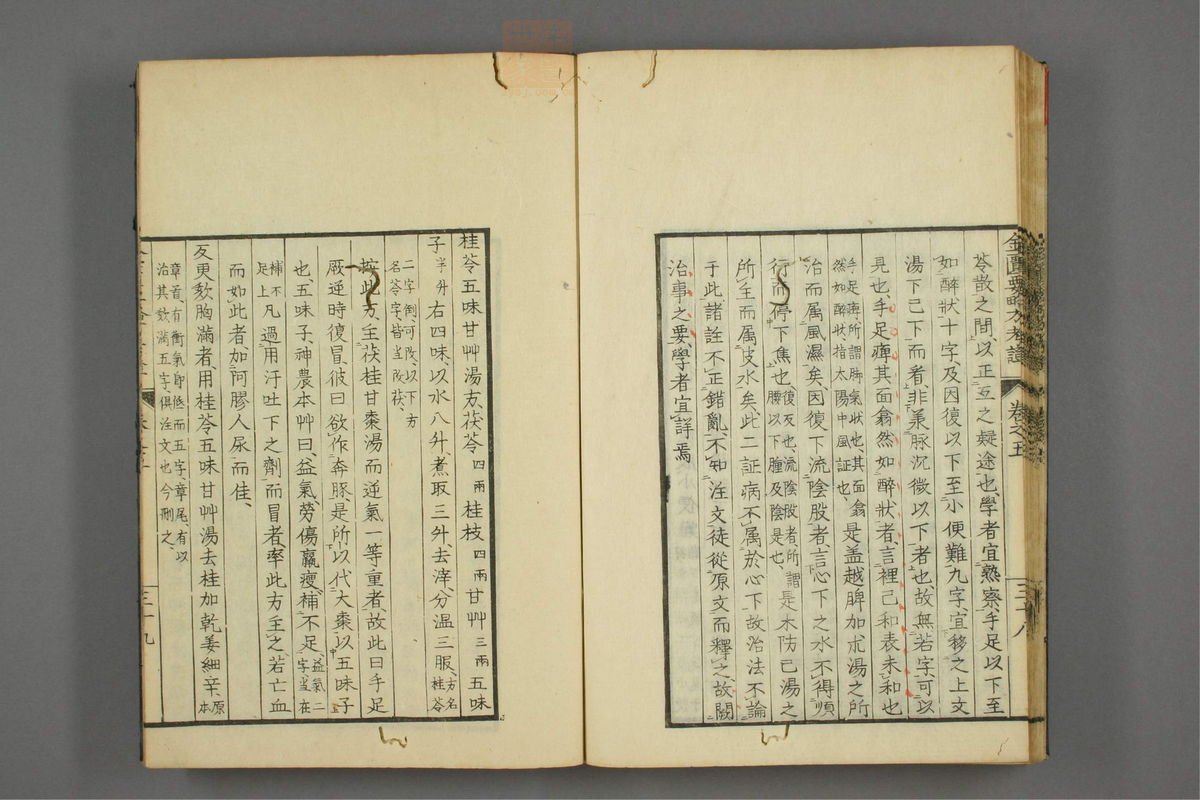 金匱要略方考證 卷之五 三十八
苓散之間、以正互之疑途也、學者宜熟察、手足以下至
如醉狀十字、及因復以下至小便難九字、宜移之上文
湯下已下而者、非蒹脉沉微以下者也、故無若字、可以
見也、手足痺其面翕然如醉狀者、言裡已和表未和也
手足痺所謂肺氣狀也、其面翕
然如醉狀、指太陽中風証也、
是盖越脾加朮湯之所
治而属風濕矣、因復下流陰股者、言心下之水不得順
行而停下焦也、
復反也、流陰股者、所謂
腰以下腫及陰是也、
是木防己湯之
所主而属皮水矣、此二証病不属於心下、故治法不論
于此、諸註不正錯亂、不知注文徒從原文而釋之、故闕
治事之要、學者宜詳焉
桂苓五味甘艸湯方、茯苓四兩 桂枝四兩 甘艸三兩 五味
子半升 右四味、以水八升、煮取三升、去滓、分温三服、
方名
桂苓
二字倒、可改、以下方
名苓字、皆當改茯、
按此方、主茯桂甘棗湯而逆氣一等重者、故此曰手足
厥逆時復冒、彼曰欲作奔豚、是所以代大棗以五味子
也、五味子、神農本艸曰、益氣、勞傷羸瘦、補不足、
益氣二
字當在
補不
足上
凡過用汗吐下之劑而冒者、率此方主之、若亡血
而如此者、加阿膠人尿而佳、
反更欬胸滿者、用桂苓五味甘艸湯去桂加乾姜細辛、
原
本
章首、有衝氣即低而五字、章尾、有以
治其欬滿五字、俱注文也、今刪之、
三十九